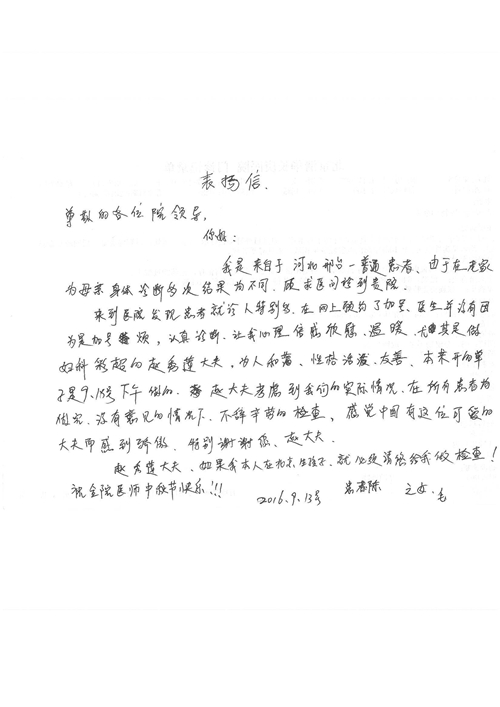 表扬信.
尊敬的各位院领导,
你好:
我是来自于河北邢台一普通患者、由于在老家
为母亲身体诊断多次结果为不同.随求医问诊到贵院.
来到医院发现患者就诊人特别多.在网上预约了加号、医生并没有因
为是加号烦,认真诊断.让我心理倍感欣慰、温暖、尤其是做
妇科彩超的赵秀莲大夫,为人和蔼、性格活泼、友善、本来开的单
子是9.15号下午做的.赵大夫考虑到我们的实际情况.在所有患者为
没有意见的情况下.不辞辛劳的检查,感觉中国有这位可爱的
大夫即感到骄傲.特别谢谢您、赵大夫.
赵秀莲大夫、如果我本人在北京生孩子.就必须请您给我做检查!
祝全院医师中秋节快乐!!!
2016.9.13号 患者陈 之女.毛